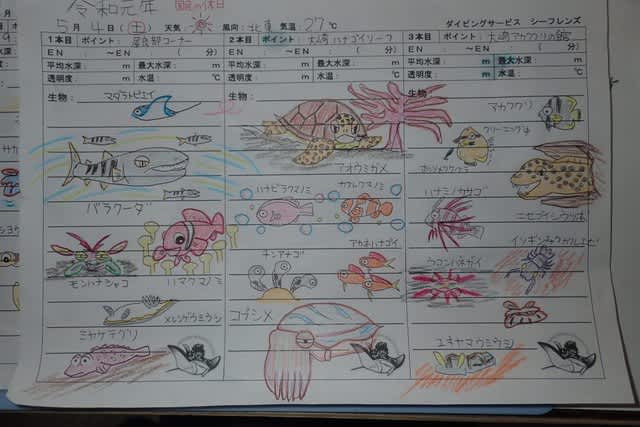 令和元年
5月4日(土) 天気: 風向: 北東 気温: 27℃
ダイビングサービス シーフレンズ
1本目 ポイント:
EN : ～EN : ( 分)
平均水深: m 最大水深: m
透明度: m 水温: ℃
生物:
マダラトビエイ
バラクーダ
モンハナシャコ
ハマクマノミ
メレンゲウミウシ
ミヤケテグリ
2本目 ポイント: 大崎ハナゴイリーフ
EN : ～EN : ( 分)
平均水深: m 最大水深: m
透明度: m 水温: ℃
生物:
アオウミガメ
ハナビラクマノミ
カクレクマノミ
チンアナゴ
アカネハナゴイ
コブシメ
3本目 ポイント: 大崎アカククリの館
EN : ～EN : ( 分)
平均水深: m 最大水深: m
透明度: m 水温: ℃
生物:
アカククリ
クリーニング中
ハナミノカサゴ
ニセゴイシウツボ
ウコンハネガイ
ユキヤマウミウシ